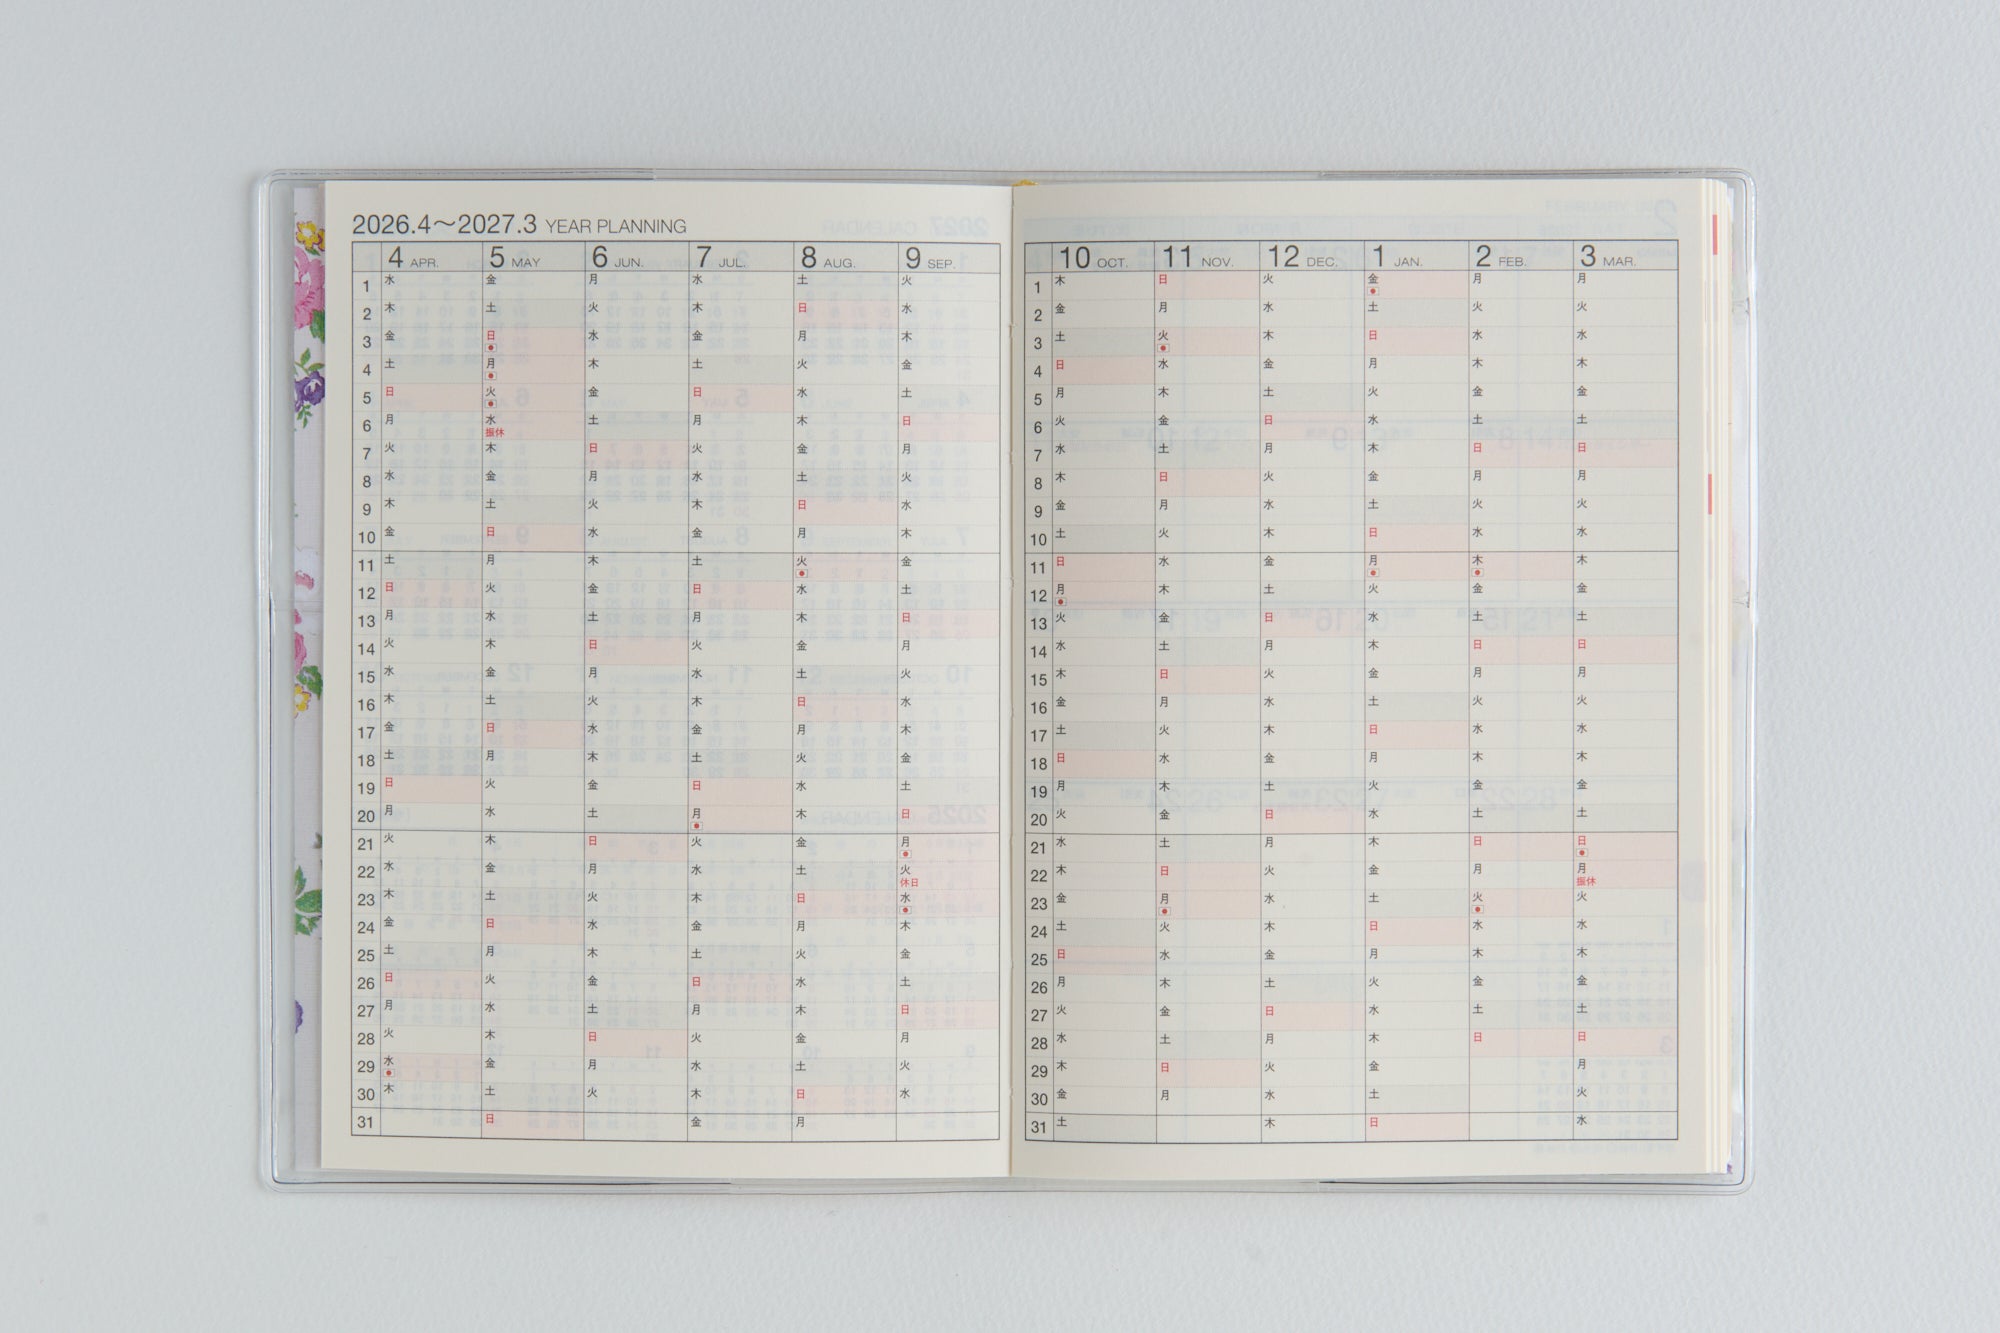 2026.4～2027.3 YEAR PLANNING
4 APR. 5 MAY 6 JUN. 7 JUL. 8 AUG. 9 SEP.
1 水 金 月 水 土 火
2 木 土 火 木 日 水
3 金 日 水 金 月 木
4 土 月 木 土 火 金
5 日 火 金 日 水 土
6 月 水 土 月 木 日
振休
7 火 木 日 火 金 月
8 水 金 月 水 土 火
9 木 土 火 木 日 水
10 金 日 水 金 月 木
11 土 月 木 土 火 金
12 日 火 金 日 水 土
13 月 水 土 月 木 日
14 火 木 日 火 金 月
15 水 金 月 水 土 火
16 木 土 火 木 日 水
17 金 日 水 金 月 木
18 土 月 木 土 火 金
19 日 火 金 日 水 土
20 月 水 土 月 木 日
21 火 木 日 火 金 月
22 水 金 月 水 土 火
休日
23 木 土 火 木 日 水
24 金 日 水 金 月 木
25 土 月 木 土 火 金
26 日 火 金 日 水 土
27 月 水 土 月 木 日
28 火 木 日 火 金 月
29 水 金 月 水 土 火
30 木 土 火 木 日 水
31 日 金 月
10 OCT. 11 NOV. 12 DEC. 1 JAN. 2 FEB. 3 MAR.
1 木 日 火 金 月 月
2 金 月 水 土 火 火
3 土 火 木 日 水 水
4 日 水 金 月 木 木
5 月 木 土 火 金 金
6 火 金 日 水 土 土
7 水 土 月 木 日 日
8 木 日 火 金 月 月
9 金 月 水 土 火 火
10 土 火 木 日 水 水
11 日 水 金 月 木 木
12 月 木 土 火 金 金
13 火 金 日 水 土 土
14 水 土 月 木 日 日
15 木 日 火 金 月 月
16 金 月 水 土 火 火
17 土 火 木 日 水 水
18 日 水 金 月 木 木
19 月 木 土 火 金 金
20 火 金 日 水 土 土
21 水 土 月 木 日 日
22 木 日 火 金 月 月
振休
23 金 月 水 土 火 火
24 土 火 木 日 水 水
25 日 水 金 月 木 木
26 月 木 土 火 金 金
27 火 金 日 水 土 土
28 水 土 月 木 日 日
29 木 日 火 金 月
30 金 月 水 土 火
31 土 木 日 水